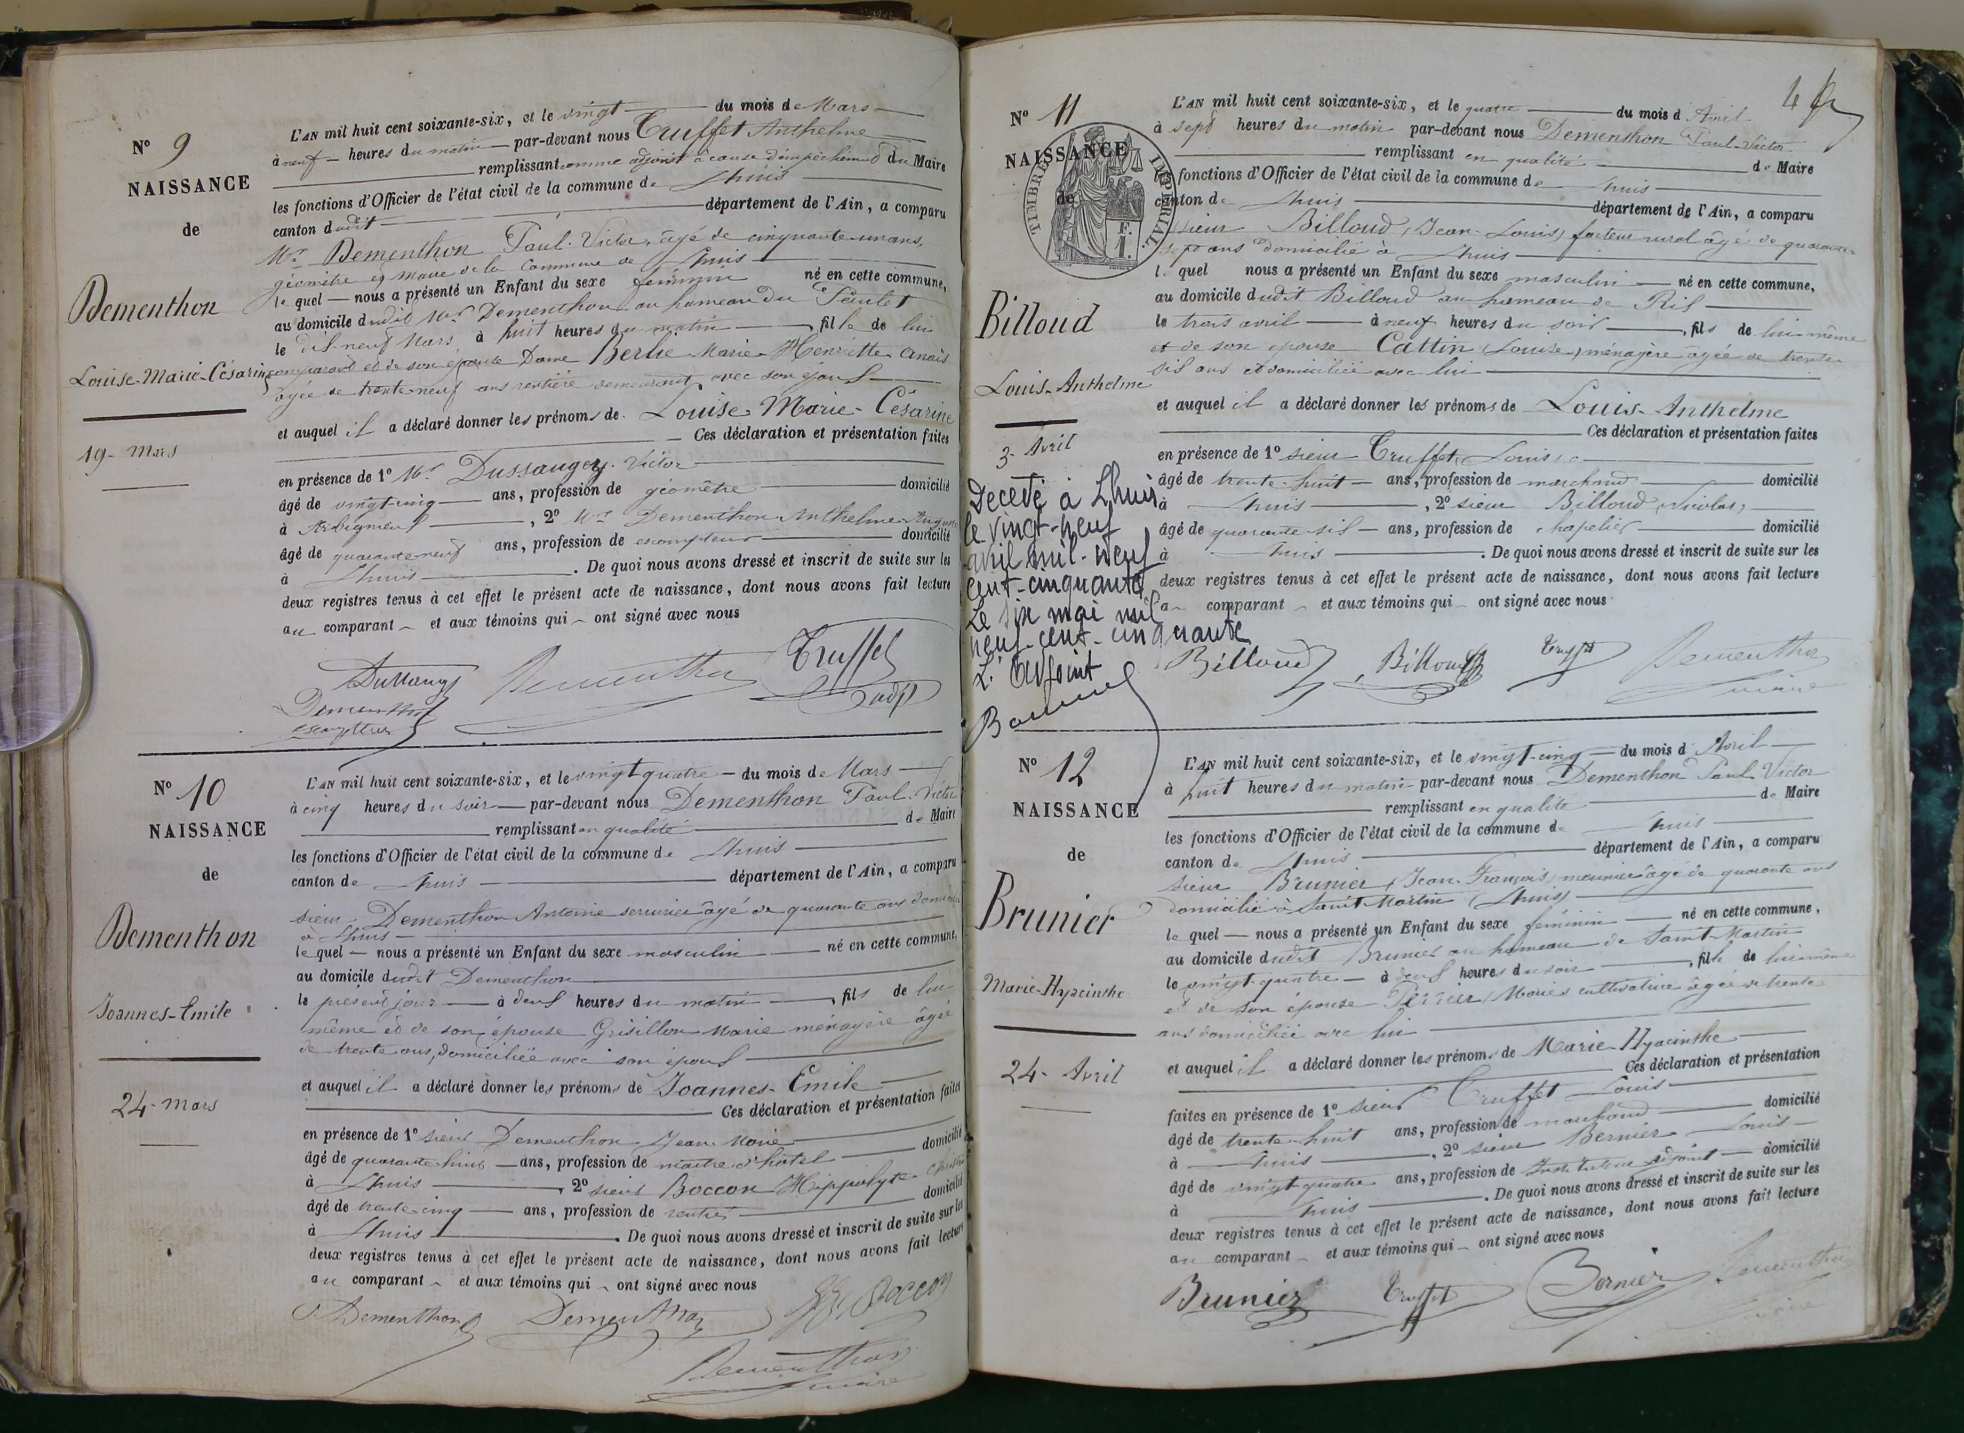 L'AN mil huit cent soixante-six, et le vingt du mois de Mars
N° 9
à neuf heures du matin par-devant nous Truffet Anthelme
NAISSANCE
remplissant comme adjoint à cause d'empêchement du Maire
les fonctions d'Officier de l'état civil de la commune de Lhuis
de
canton dudit département de l'Ain, a comparu
Mr Dementhon Paul-Victor, âgé de cinquante-un ans,
géomètre et Maire de la Commune de Lhuis
Dementhon
le quel nous a présenté un Enfant du sexe féminin né en cette commune,
au domicile dudit Mr Dementhon au hameau du
le dix-neuf Mars à huit heures du matin, fille de lui
Louise-Marie-Césarine
comparant et de son épouse Dame Berlie Marie Henriette Anaïs
âgée de trente-neuf ans rentière demeurant avec son époux
et auquel il a déclaré donner les prénoms de Louise Marie-Césarine
19 - Mars
Ces déclaration et présentation faites
en présence de 1° Mr Dussaugey Victor
âgé de vingt-cinq ans, profession de géomètre domicilié
à Arbignieu, 2° Mr Dementhon Anthelme
âgé de quarante-neuf ans, profession de escompteur domicilié
à Lhuis. De quoi nous avons dressé et inscrit de suite sur les
deux registres tenus à cet effet le présent acte de naissance, dont nous avons fait lecture
au comparant et aux témoins qui ont signé avec nous
Dussaugey Dementhon Truffet
Dementhon adjt
escompteur
N° 10
L'AN mil huit cent soixante-six, et le vingt quatre du mois de Mars
à cinq heures du soir par-devant nous Dementhon Paul-Victor
NAISSANCE
remplissant en qualité de Maire
les fonctions d'Officier de l'état civil de la commune de Lhuis
de
canton de Lhuis département de l'Ain, a comparu
sieur Dementhon Antoine serrurier âgé de quarante ans domicilié
à Lhuis
Dementhon
le quel nous a présenté un Enfant du sexe masculin né en cette commune,
au domicile dudit Dementhon
Joannes-Emile
le présent jour à deux heures du matin, fils de lui
même et de son épouse Grisillon Marie ménagère âgée
de trente ans, domiciliée avec son époux
et auquel il a déclaré donner les prénoms de Joannes-Emile
24 - Mars
Ces déclaration et présentation faites
en présence de 1° sieur Dementhon Jean Marie
âgé de quarante huit ans, profession de maître d'hôtel domicilié
à Lhuis, 2° sieur Boccon Hippolyte
âgé de trente-cinq ans, profession de rentier domicilié
à Lhuis. De quoi nous avons dressé et inscrit de suite sur les
deux registres tenus à cet effet le présent acte de naissance, dont nous avons fait lecture
au comparant et aux témoins qui ont signé avec nous
Dementhon Dementhon Boccon
Dementhon
maire
4
N° 11
L'AN mil huit cent soixante-six, et le quatre du mois d'Avril
à sept heures du matin par-devant nous Dementhon Paul-Victor
NAISSANCE
remplissant en qualité de Maire
TIMBRE IMPÉRIAL
fonctions d'Officier de l'état civil de la commune de Lhuis
de
canton de Lhuis département de l'Ain, a comparu
sieur Billoud (Jean-Louis) facteur rural âgé de quarante
sept ans domicilié à Lhuis
le quel nous a présenté un Enfant du sexe masculin né en cette commune,
Billoud
au domicile dudit Billoud au hameau de Rix
le trois avril à neuf heures du soir, fils de lui-même
et de son épouse Cattin (Louise) ménagère âgée de trente
six ans et domiciliée avec lui
Louis-Anthelme
et auquel il a déclaré donner les prénoms de Louis-Anthelme
Ces déclaration et présentation faites
3 - Avril
en présence de 1° sieur Truffet Louis
âgé de trente-huit ans, profession de marchand domicilié
à Lhuis, 2° sieur Billoud (Nicolas)
âgé de quarante six ans, profession de chapelier domicilié
à Lhuis. De quoi nous avons dressé et inscrit de suite sur les
deux registres tenus à cet effet le présent acte de naissance, dont nous avons fait lecture
au comparant et aux témoins qui ont signé avec nous
Décédé à Lhuis
le vingt-neuf
avril mil-neuf
cent-cinquante
Le six mai mil
neuf-cent-cinquante
L'adjoint
Billoud Billoud Truffet Dementhon
maire
N° 12
L'AN mil huit cent soixante-six, et le vingt-cinq du mois d'Avril
à huit heures du matin par-devant nous Dementhon Paul Victor
NAISSANCE
remplissant en qualité de Maire
les fonctions d'Officier de l'état civil de la commune de Lhuis
de
canton de Lhuis département de l'Ain, a comparu
sieur Brunier (Jean-François) meunier âgé de quarante ans
domicilié à Saint Martin (Lhuis)
Brunier
le quel nous a présenté un Enfant du sexe féminin né en cette commune,
au domicile dudit Brunier au hameau de Saint-Martin
Marie-Hyacinthe
le vingt-quatre à deux heures du soir, fille de lui-même
et de son épouse Perrier (Marie) cultivatrice âgée de trente
ans domiciliée avec lui
et auquel il a déclaré donner les prénoms de Marie-Hyacinthe
24 - Avril
Ces déclaration et présentation
faites en présence de 1° sieur Truffet Louis
âgé de trente-huit ans, profession de marchand domicilié
à Lhuis, 2° sieur Bernier Louis
âgé de vingt-quatre ans, profession de Instituteur adjoint domicilié
à Lhuis. De quoi nous avons dressé et inscrit de suite sur les
deux registres tenus à cet effet le présent acte de naissance, dont nous avons fait lecture
au comparant et aux témoins qui ont signé avec nous
Brunier Truffet Bernier Dementhon
maire